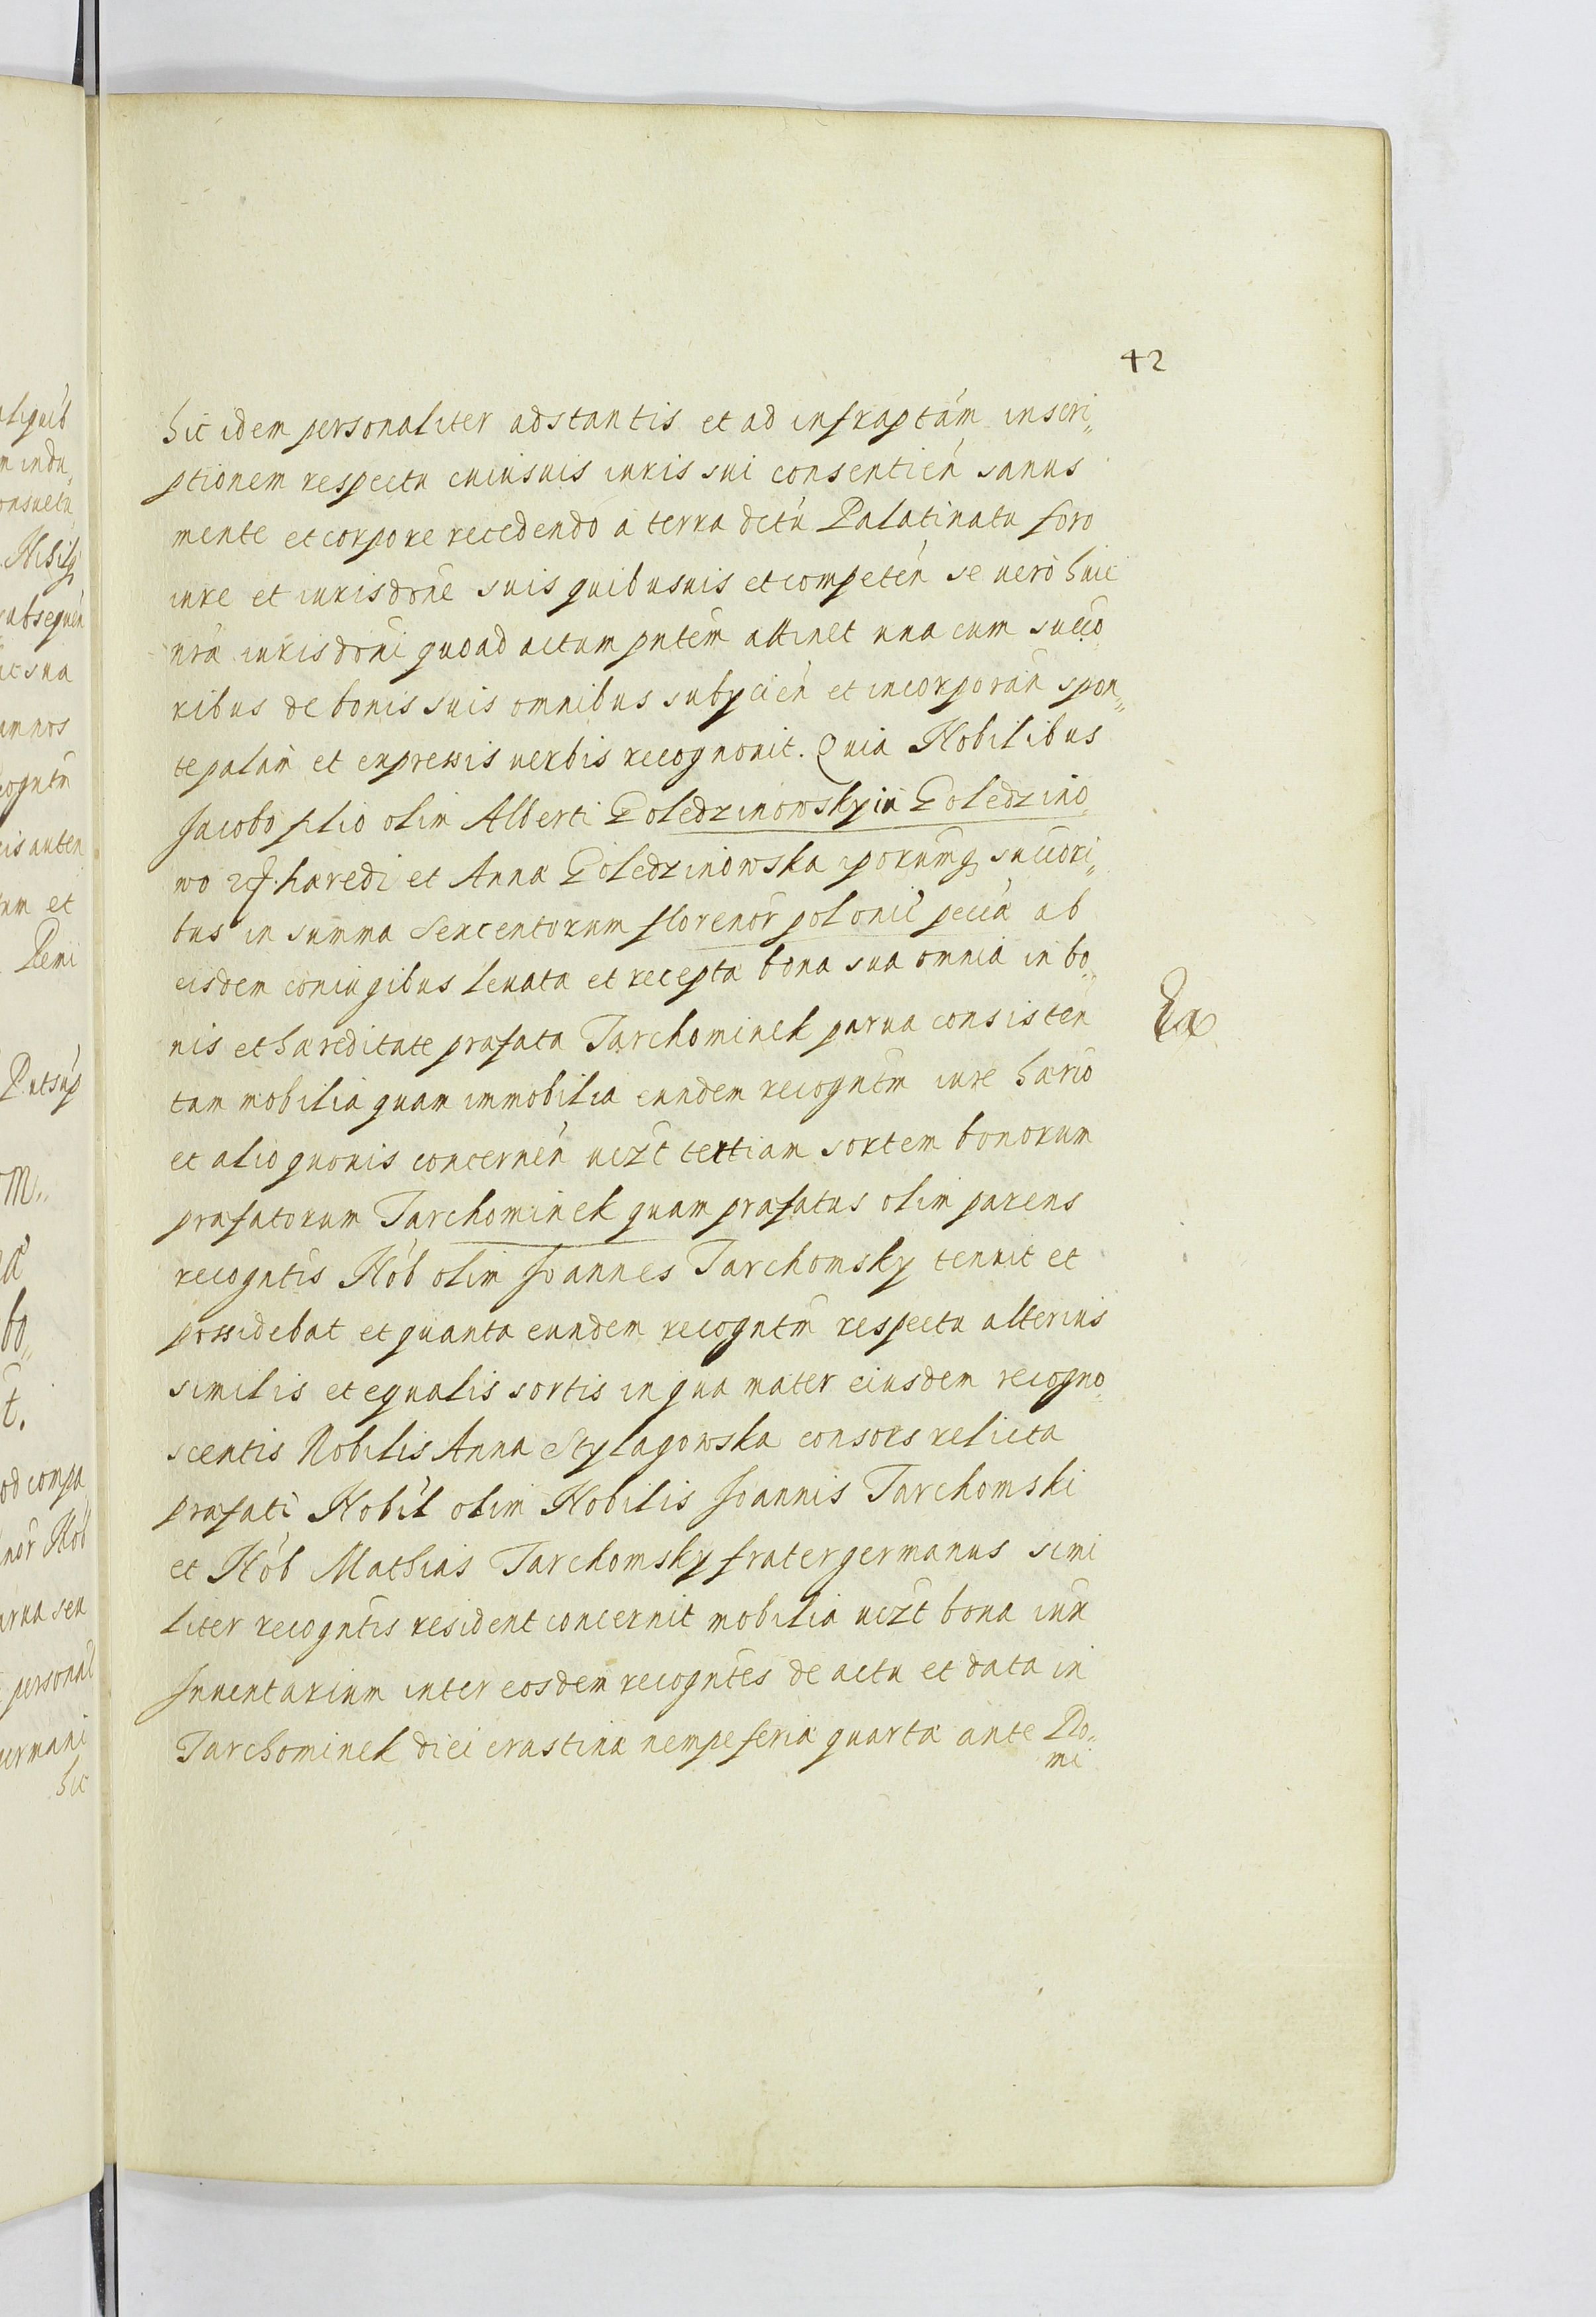 42
hic idem personaliter adstantis et ad infraptam inscri„
ptionem respectu cuiusuis iuris sui consentien sanus
mente et corpore recedendo a terra dctu Palatinatu foro
iure et iurisdone suis quibusuis et competen se uero huic
nra iurisdoni quoad actum pntem attinet una cum succo
ribus de bonis suis omnibus subycien et incorporan spon„
te palam et expressis uerbis recognouit. Quia Nobilibus
Jacobo filio olim Alberti Goledzinowsky in Goledzino
wo haredi et Anna Goledzinowska iporumq succori„
bus in summa Sexcentorum florenor polonil pecca ab
eisdem coniugibus leuata et recepta bona sua omnia in bo„
nis et hareditate prafata Tarchominek parua consisten
tam mobilia quam immobilia eundem recogntm iure hario
et alio quouis concernen uczt tertiam sortem bonorum
prafatorum Tarchominek quam prafatus olim parens
recogntis Nob olim Joannes Tarchomsky tenuit et
possidebat et quanta eundem recogntm respectu alterius
similis et equalis sortis in qua mater eiusdem recogno
scentis Nobilis Anna Stylagowska consors relicta
prafati Nobil olim Nobilis Joannis Tarchomski
et Nob Mathias Tarchomsky frater germanus simi
liter recogntis resident concernit mobilia uczt bona iux
Inuentarium inter eosdem recogntes de actu et data in
Tarchominek diei crastina nempe feria quarta ante Do„
mi